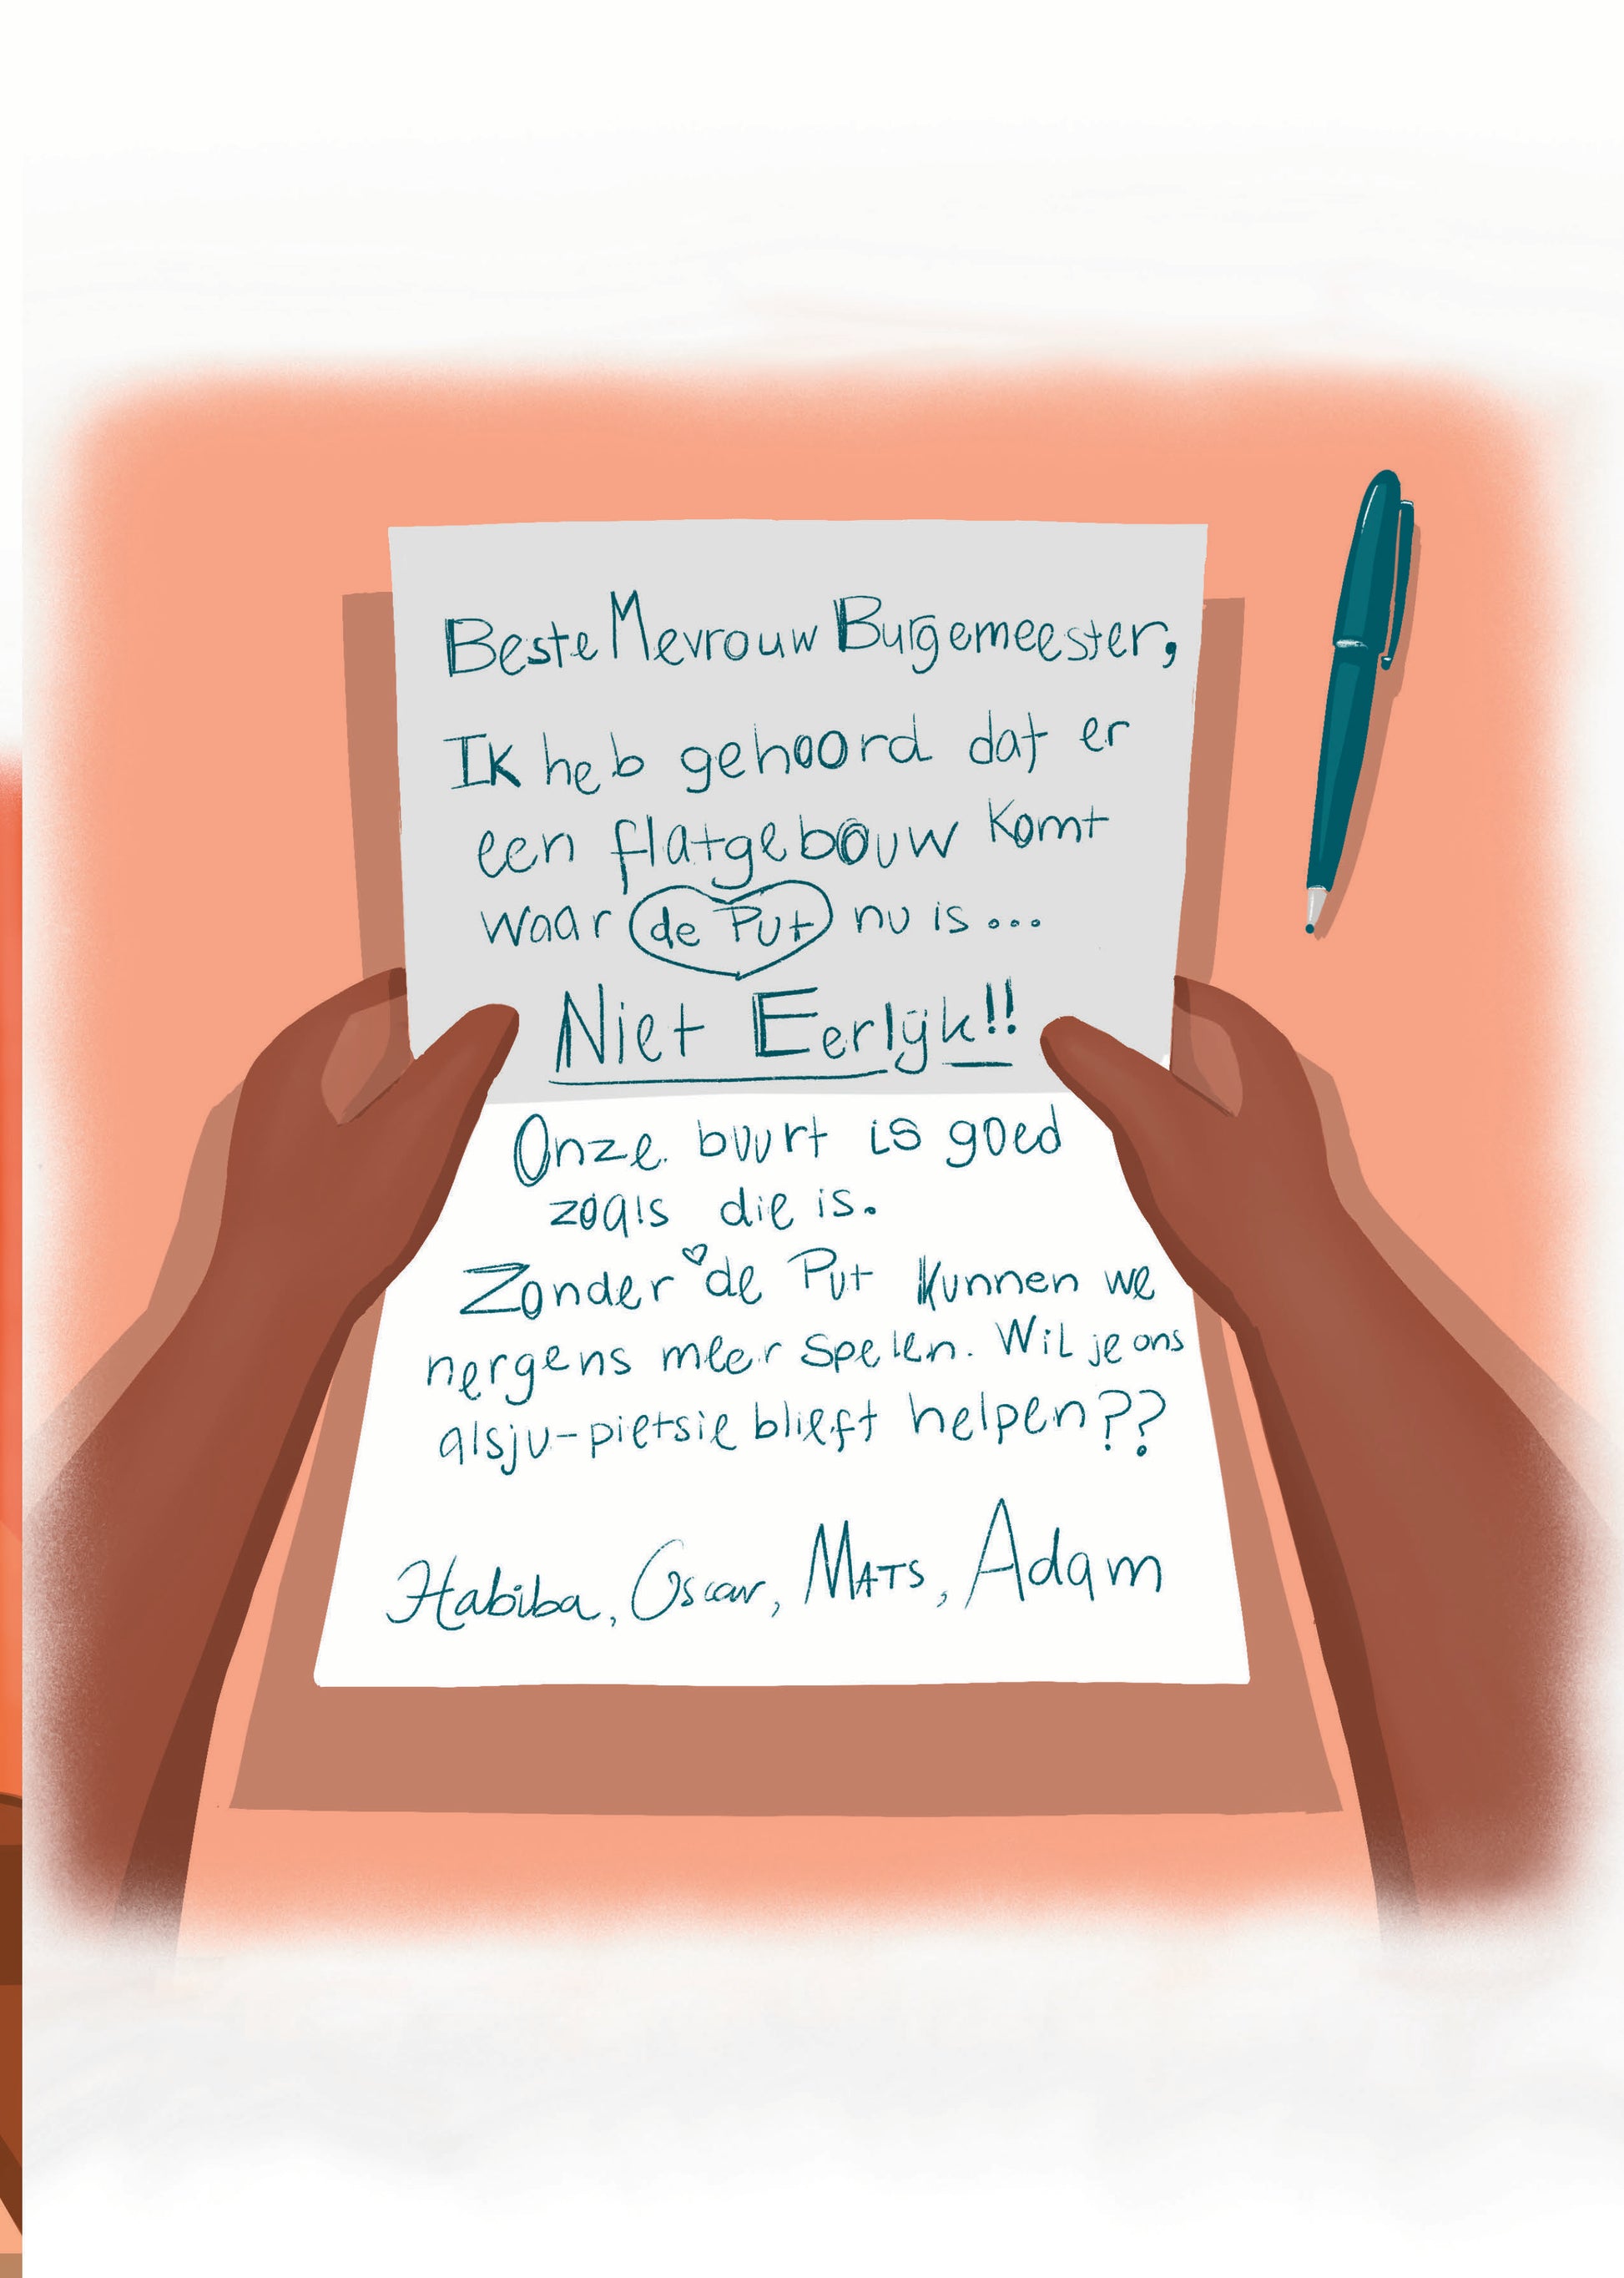 Beste Mevrouw Burgemeester,
Ik heb gehoord dat er
een flatgebouw komt
waar de Put nu is...
Niet Eerlijk!!
Onze buurt is goed
zoals die is.
Zonder de Put kunnen we
nergens meer spelen. Wil je ons
alsju-pietsie blieft helpen??
Habiba, Oscar, MATS, Adam